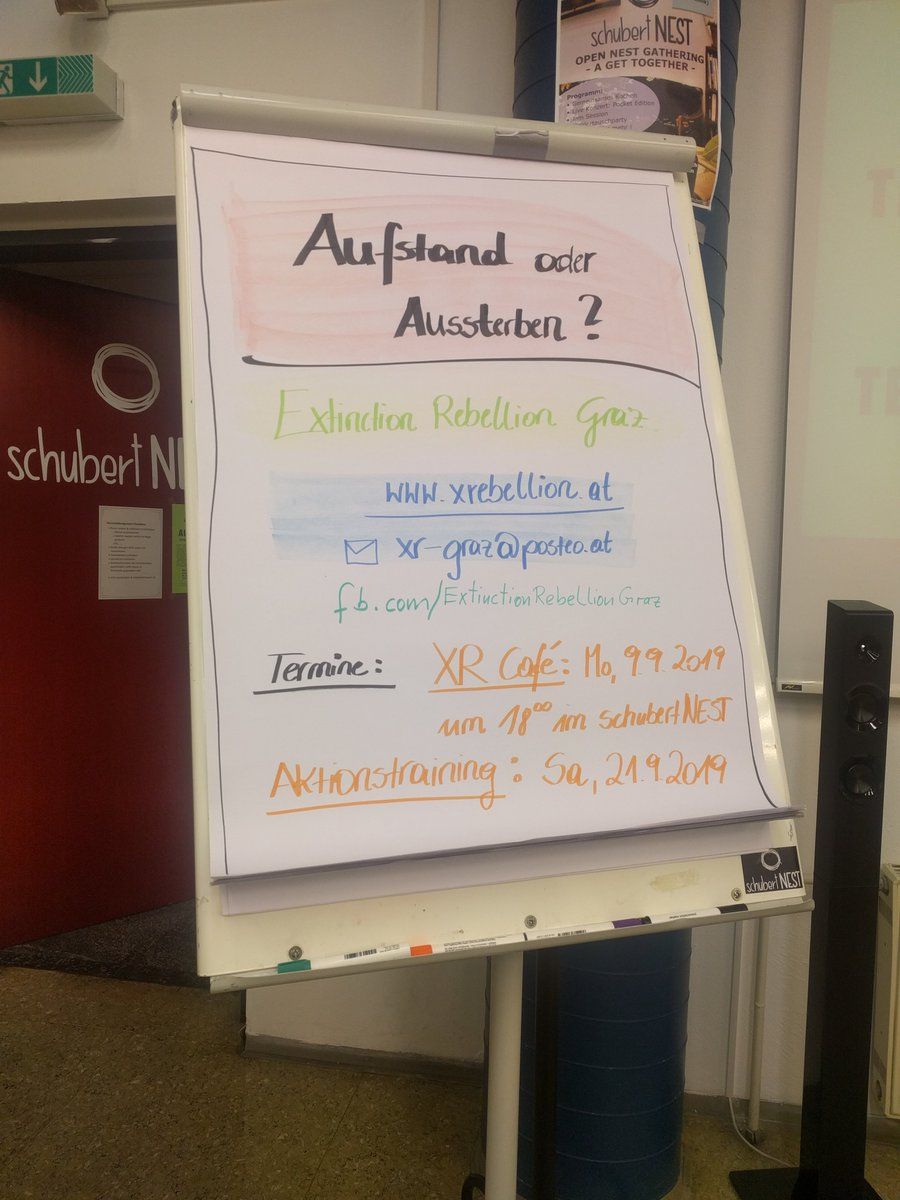 schubert NEST
OPEN NEST GATHERING
- A GET TOGETHER -
Programm:
Live Konzert: Pocket Edition
Aufstand oder
Aussterben?
Extinction Rebellion Graz
www.xrebellion.at
xr-graz@posteo.at
fb.com/ExtinctionRebellionGraz
Termine: XR Café: Mo, 9.9.2019
um 18°° im schubertNEST
Aktionstraining: Sa, 21.9.2019
schubert NEST
schubert